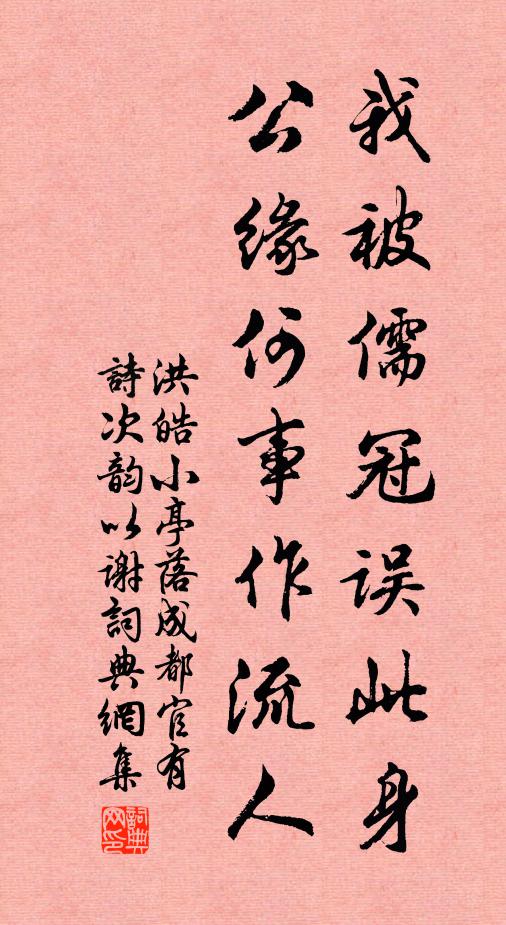 我被儒冠误此身
公缘何事作流人
洪皓小亭落成都官有
詩次韵以谢詞典網集
詞典
网印